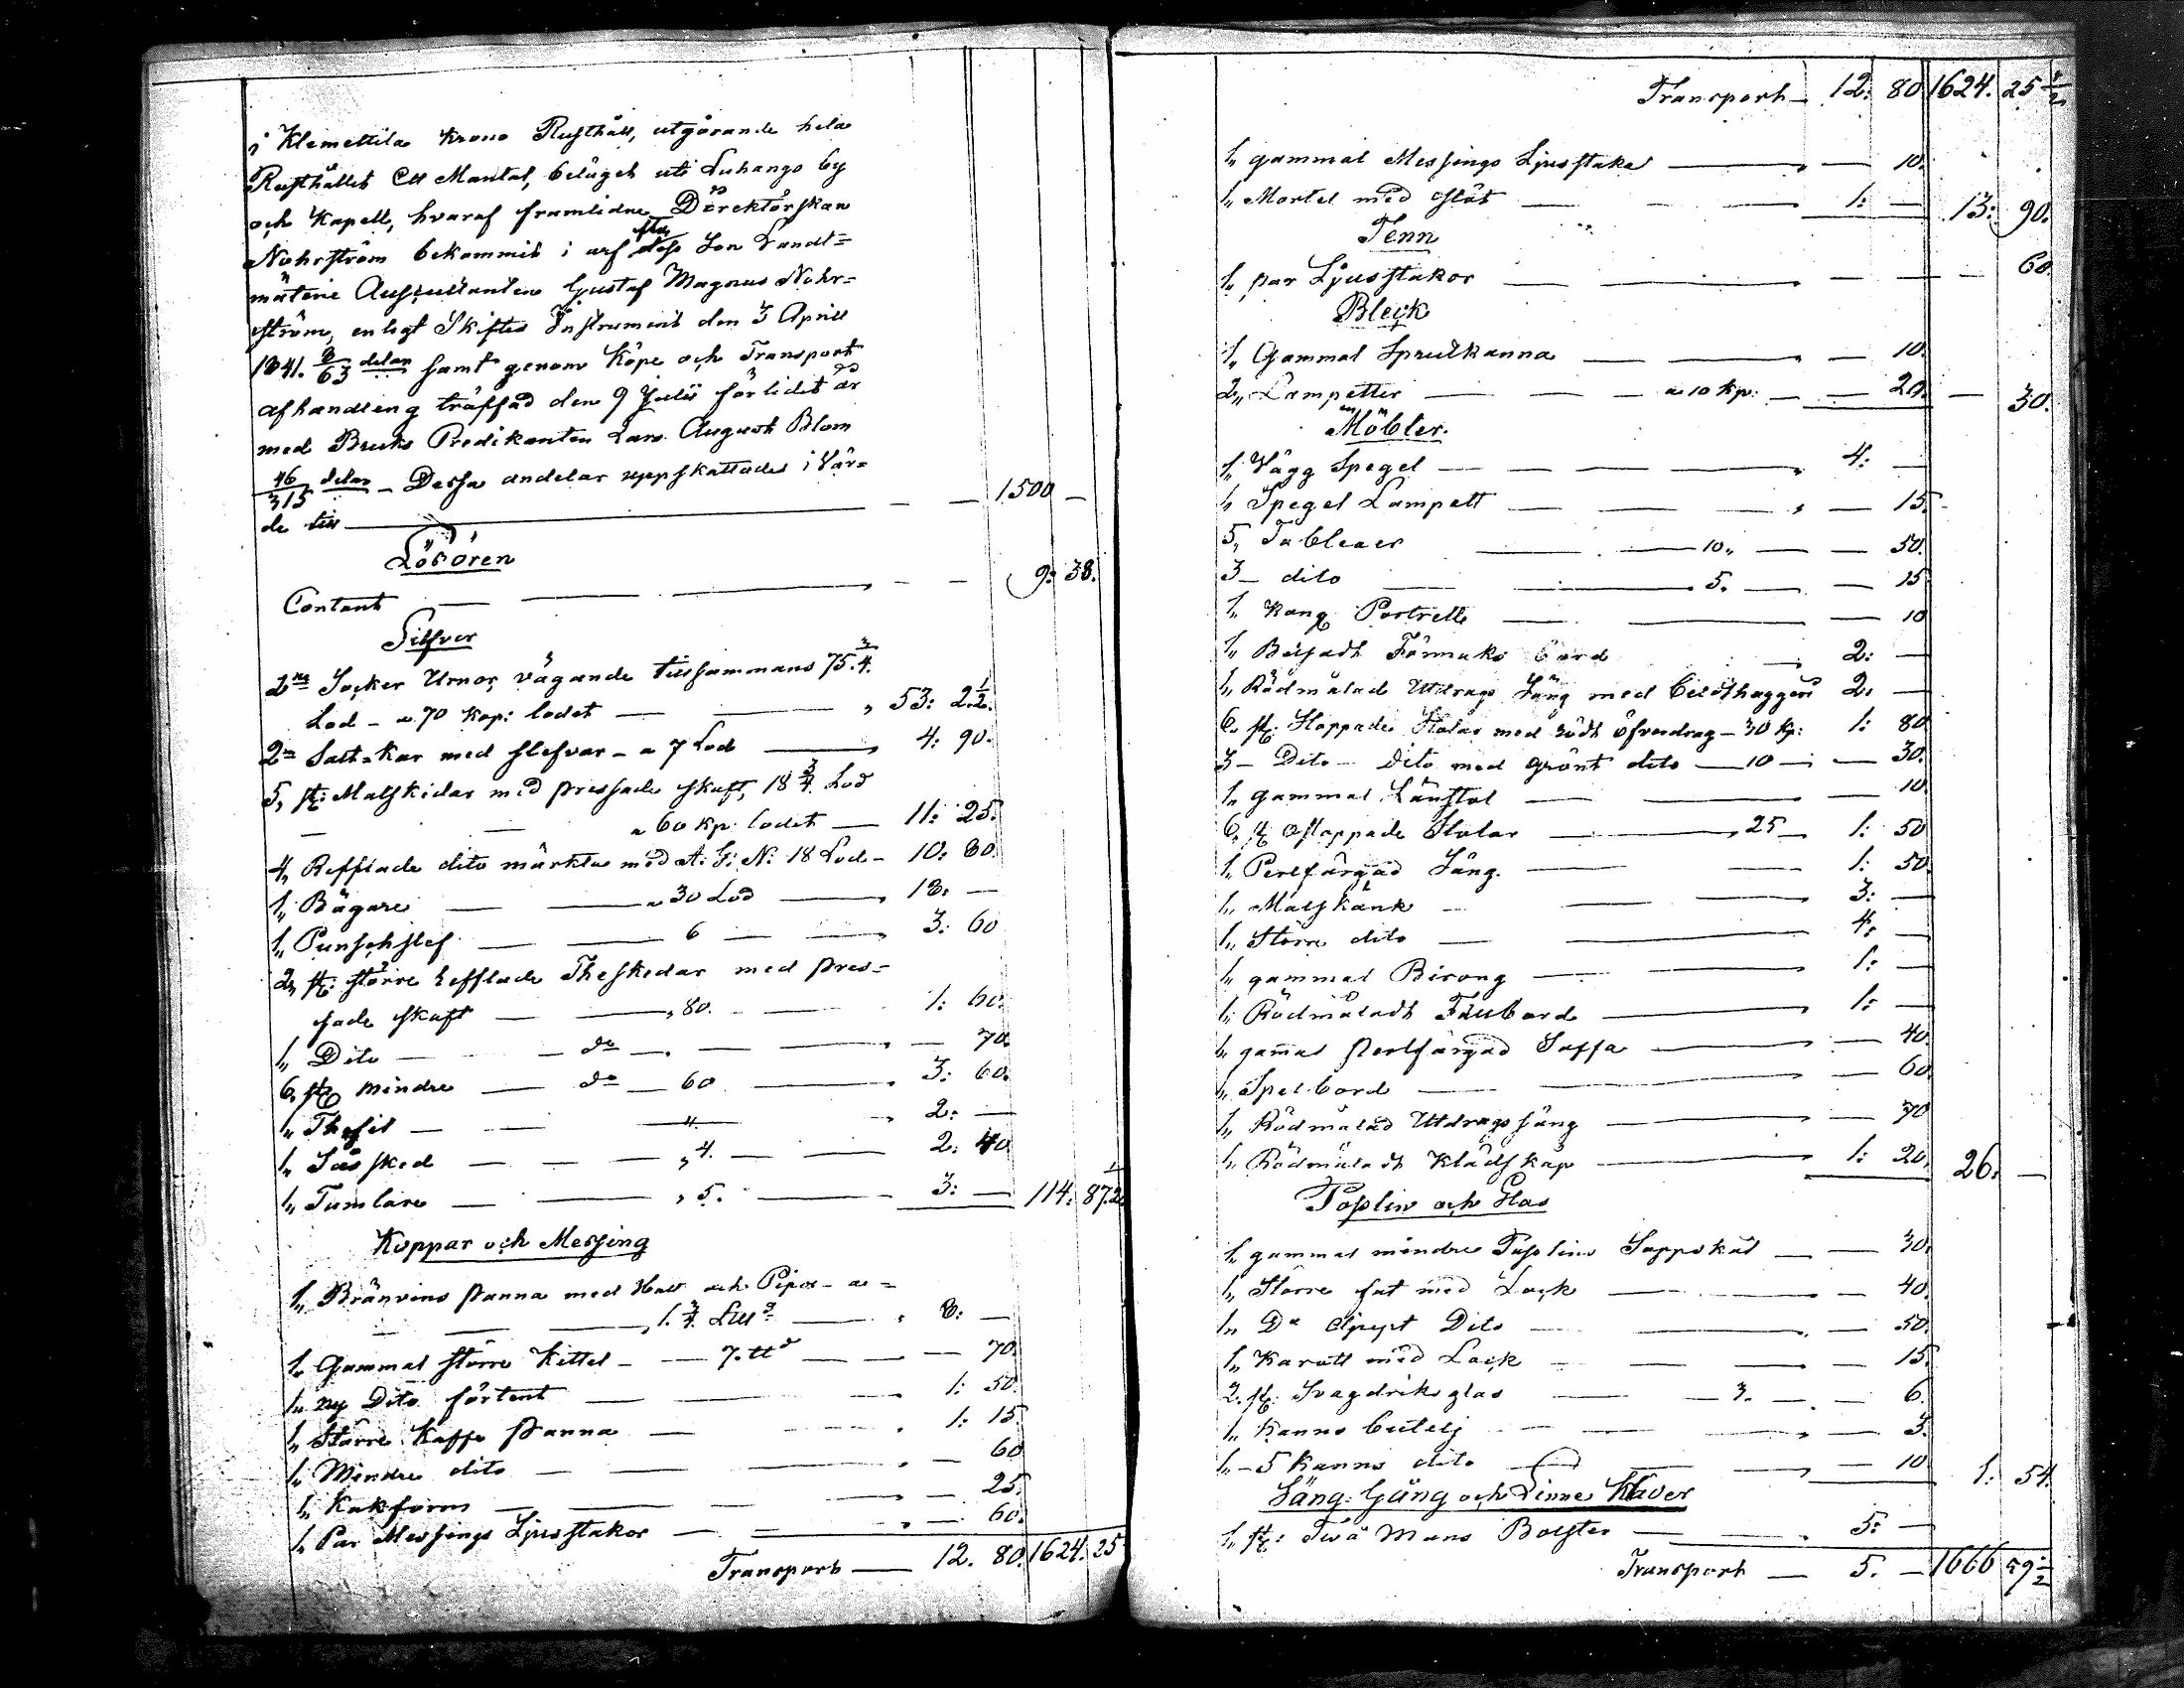 i Klemettila Krono Rusthåll, utgörande hela
Rusthållet Ett Mantal, beläget uti Luhango by
och Kapell, hvaraf framlidne Direktörskan
Nohrström bekommit i arf efter dess Son Landt=
mäterie Auscultanten Gustaf Magnus Nohr=
ström, enligt Skiftes Instrument den 3 April
1841. 8/63 delar samt genom Köpe och Transport
afhandling träffad den 9 Julii förlidet år
med Bruks Predikanten Lars August Blom
46/315 delar - Dessa andelar uppskattades i Vär=
de till — — — 1500 —
Lösören
Contant — — — 9: 38.
Silfver
2ne Socker Urnor, vägande tillsammans 75 3/4.
Lod - a 70 kop: lodet — — 53: 2 1/2.
2ne Salt=kar med slefvar - a 7 Lod — 4: 90.
5, st: Matskidar med pressade skaft, 18 3/4 Lod
— — a 60 kp. lodet — 11: 25.
4, Refflade dito märkta med A: G: N: 18 Lod - 10: 80.
1,, Bägare — — a 30 Lod — 18. —
1,, Punschslef — — 6 — — 3: 60
2, st: större refflade Theskedar med pres=
sade skaft — — 80. — 1: 60.
1,, Dito — — do — — — 70.
6, st mindre — do — 60 — 3: 60.
1,, Thesil — — 4. — 2: —
1,, Sås sked — — 4. — 2: 40.
1,, Tumlare — — 5. — 3: — 114: 87 1/2.
Koppar och Messing
1,, Bränvins panna med Hatt och Pipor - a =
— — 1 3/4 Lll — 8: —
1,, Gammal större Kittel - — 7. ℔ — — 70.
1,, ny Dito förtent — — 1: 50.
1,, Större Kaffe panna — — 1: 15.
1,, Mindre dito — — — 60
1,, Kakform — — — 25.
1,, Par Messings Ljusstakar — — 60.
Transport — 12. 80. 1624. 25
Transport — 12: 80 1624. 25 1/2
1,, gammal Messings Ljusstake — — 10.
1,, Mortel med stöt — — 1: — 13: 90.
Tenn
1,, par Ljusstakar — — — 60.
Bleck
1,, Gammal Sprutkanna — — 10.
2,, Lampetter — — a 10 kp: — — 20. — 30.
Möbler.
1,, Vägg Spegel — — — 4: —
1,, Spegel Lampett — — — 15.
5, Tableaer — — 10,, — — 50.
3 — dito — — 5. — — 15
1,, Kong Portrett — — — 10
1,, Betsadt Förmaks bord — 2: —
1,, Rödmålad Utdrags Säng med 2. —
6. st. Stoppade Stolar med rödt öfverdrag - 30 kp: 1: 80
3 — Dito — dito med grönt dito — 10 — — 30.
1,, gammal Länstol — — — 10.
6, st ostoppade Stolar — 25 — 1: 50
1,, Perlfärgad Säng. — — 1: 50.
1,, Matskänk — — 3: —
1,, Större dito — — 4. —
1,, gammal Birong — — 1: —
1,, Rödmåladt Fällbord — 1: —
1,, gamal perlfärgad Saffa — — 40.
1,, Spelbord — — — 60.
1,, Rödmålad Utdragssäng — — 70
1,, Rödmåladt Klädskåp — 1: 20. 26. —
Poslin och Glas
1,, gammal mindre Poslins Soppskål — — 30.
1,, Större fat med Lock — — 40.
1,, Do Dito — — 50.
1,, Karott med Lock — — 15.
2. st. Svagdriks glas — 3. — — 6.
1,, Kanns butelj — — — 3.
1,, — 5 Kanns dito — — 10 1: 54.
Säng: Gång och Linne Kläder
1,, st: Två Mans Bolster — — 5: —
Transport — 5. — 1666 59 1/2